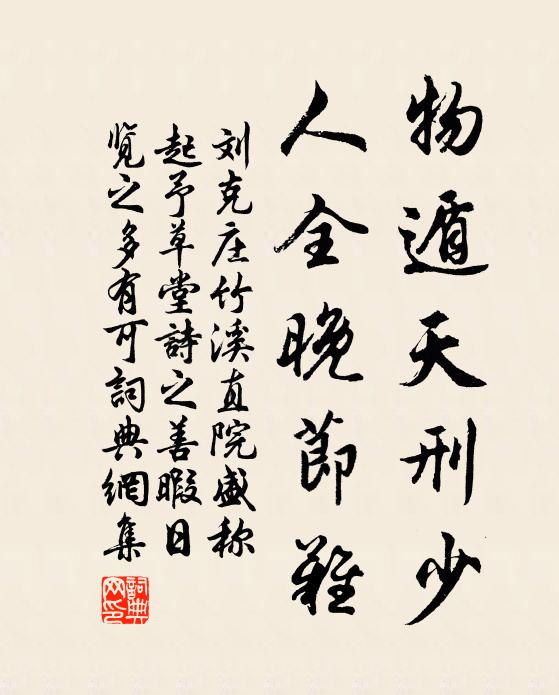 物遁天刑少
人全晚節難
刘克庄竹溪直院盛称
起予草堂詩之善暇日
覽之多有可詞典網集
詞典网印